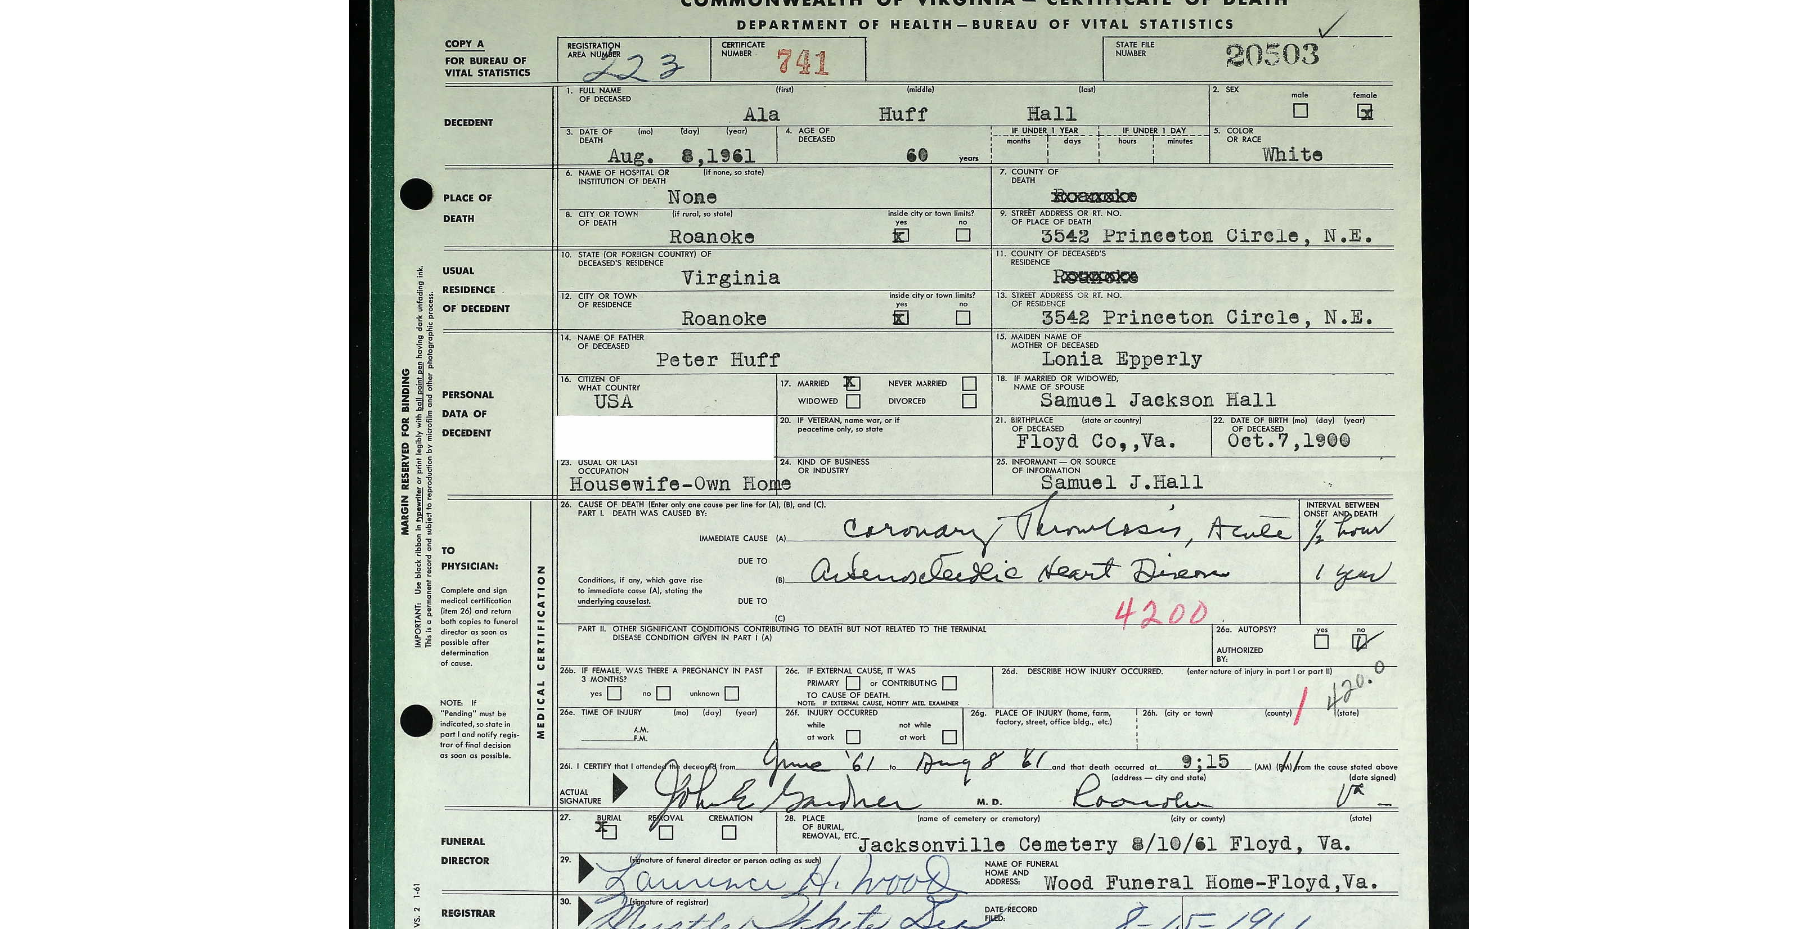 COMMONWEALTH OF VIRGINIA — CERTIFICATE OF DEATH
DEPARTMENT OF HEALTH — BUREAU OF VITAL STATISTICS
COPY A
FOR BUREAU OF
VITAL STATISTICS
REGISTRATION
AREA NUMBER
223
CERTIFICATE
NUMBER
741
STATE FILE
NUMBER
20503
DECEDENT
1. FULL NAME
OF DECEASED
(first) (middle) (last)
Ala Huff Hall
2. SEX
male female
x
3. DATE OF DEATH (mo) (day) (year)
Aug. 8,1961
4. AGE OF
DECEASED
60 years
IF UNDER 1 YEAR
months days
IF UNDER 1 DAY
hours minutes
5. COLOR
OR RACE
White
PLACE OF
DEATH
6. NAME OF HOSPITAL OR (if none, so state)
INSTITUTION OF DEATH
None
7. COUNTY OF
DEATH
Roanoke
8. CITY OR TOWN (if rural, so state)
OF DEATH
Roanoke
inside city or town limits?
yes no
x
9. STREET ADDRESS OR RT. NO.
OF PLACE OF DEATH
3542 Princeton Circle, N.E.
USUAL
RESIDENCE
OF DECEDENT
10. STATE (OR FOREIGN COUNTRY) OF
DECEASED'S RESIDENCE
Virginia
11. COUNTY OF DECEASED'S
RESIDENCE
Roanoke
12. CITY OR TOWN
OF RESIDENCE
Roanoke
inside city or town limits?
yes no
x
13. STREET ADDRESS OR RT. NO.
OF RESIDENCE
3542 Princeton Circle, N.E.
PERSONAL
DATA OF
DECEDENT
14. NAME OF FATHER
OF DECEASED
Peter Huff
15. MAIDEN NAME OF
MOTHER OF DECEASED
Lonia Epperly
16. CITIZEN OF
WHAT COUNTRY
USA
17. MARRIED X NEVER MARRIED
WIDOWED DIVORCED
18. IF MARRIED OR WIDOWED,
NAME OF SPOUSE
Samuel Jackson Hall
20. IF VETERAN, name war, or if
peacetime only, so state
21. BIRTHPLACE (state or country)
OF DECEASED
Floyd Co,,Va.
22. DATE OF BIRTH (mo) (day) (year)
OF DECEASED
Oct.7,1900
23. USUAL OR LAST
OCCUPATION
Housewife-Own Home
24. KIND OF BUSINESS
OR INDUSTRY
25. INFORMANT — OR SOURCE
OF INFORMATION
Samuel J.Hall
MARGIN RESERVED FOR BINDING
IMPORTANT: Use black ribbon in typewriter or print legibly with ball point pen having dark unfading ink.
This is a permanent record and subject to reproduction by microfilm and other photographic process.
TO
PHYSICIAN:
Complete and sign
medical certification
(item 26) and return
both copies to funeral
director as soon as
possible after
determination
of cause.
NOTE: IF
"Pending" must be
indicated, so state in
part I and notify regis-
trar of final decision
as soon as possible.
MEDICAL CERTIFICATION
26. CAUSE OF DEATH (Enter only one cause per line for (A), (B), and (C).
PART I. DEATH WAS CAUSED BY:
INTERVAL BETWEEN
ONSET AND DEATH
IMMEDIATE CAUSE (A) Coronary Thrombosis, Acute 1/2 hour
DUE TO
Conditions, if any, which gave rise
to immediate cause (A), stating the
underlying cause last.
(B) Arteriosclerotic Heart Disease 1 year
DUE TO
(C)
4200
PART II. OTHER SIGNIFICANT CONDITIONS CONTRIBUTING TO DEATH BUT NOT RELATED TO THE TERMINAL
DISEASE CONDITION GIVEN IN PART I (A)
26a. AUTOPSY? yes no
AUTHORIZED
BY:
26b. IF FEMALE, WAS THERE A PREGNANCY IN PAST
3 MONTHS?
yes no unknown
26c. IF EXTERNAL CAUSE, IT WAS
PRIMARY or CONTRIBUTING
TO CAUSE OF DEATH.
NOTE: IF EXTERNAL CAUSE, NOTIFY MED. EXAMINER
26d. DESCRIBE HOW INJURY OCCURRED. (enter nature of injury in part I or part II)
420.0
26e. TIME OF INJURY (mo) (day) (year)
A.M.
P.M.
26f. INJURY OCCURRED
while not while
at work at work
26g. PLACE OF INJURY (home, farm,
factory, street, office bldg., etc.)
26h. (city or town) (county) (state)
26i. I CERTIFY that I attended the deceased from June '61 to Aug 8 '61 and that death occurred at 9;15 (AM) (PM) from the cause stated above
(address — city and state) (date signed)
ACTUAL
SIGNATURE
John E Gardner M. D. Roanoke Va
FUNERAL
DIRECTOR
27. BURIAL REMOVAL CREMATION
X
28. PLACE
OF BURIAL,
REMOVAL, ETC.
(name of cemetery or crematory) (city or county) (state)
Jacksonville Cemetery 8/10/61 Floyd, Va.
29. (signature of funeral director or person acting as such)
Laurence H. Wood
NAME OF FUNERAL
HOME AND
ADDRESS:
Wood Funeral Home-Floyd,Va.
REGISTRAR
30. (signature of registrar)
DATE RECORD
FILED:
VS. 2 1-61